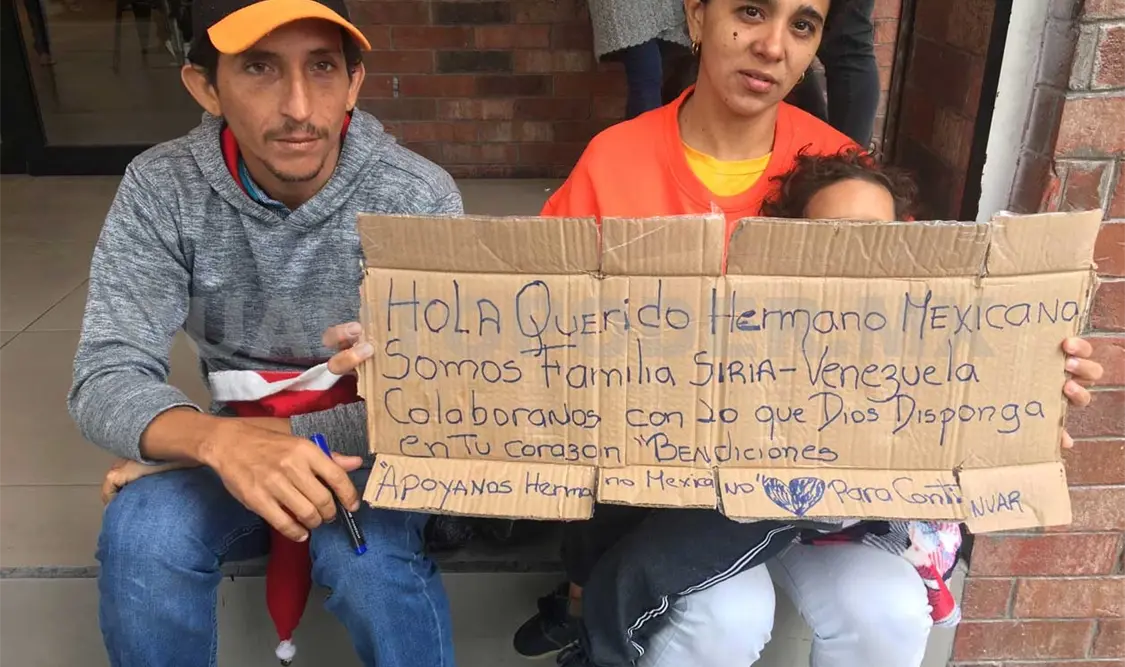 Hola Querido Hermano MEXICANO
Somos Familia SIRIA-Venezuela
Colaboranos con lo que Dios Disponga
en Tu corazon "BENDICIONES
"APOYANOS Hermano Mexicano" Para Continuar